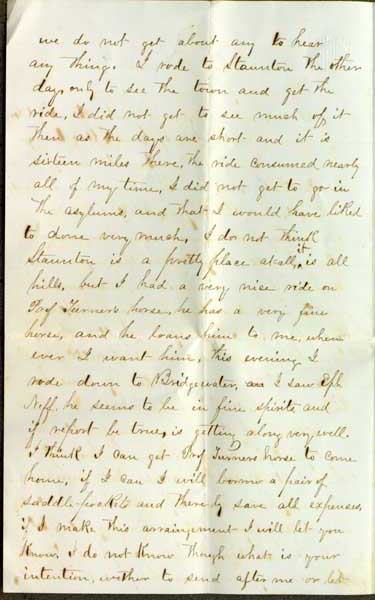 we do not get about any to hear
any thing. I rode to Staunton the other
day only to see the town and get the
ride, I did not get to see much of it
then as the days are short and it is
sixteen miles there, the ride consumed nearly
all of my time, I did not get to go in
the asylums, and that I would have liked
to done very much, I do not think
Staunton is a pretty place at all, it is all
hills, but I had a very nise ride on
Prof Turner's horse, he has a very fine
horse, and he loans him to me, when
ever I want him, this evening I
rode down to Bridgewater, I saw Eph
Neff, he seems to be in fine spirits, and
if report be true, is getting along very well.
I think I can get Prof Turners horse to come
home, if I can I will borrow a pair of
saddle-pockets and thereby save all expenses,
if I make this arrangement I will let you
know, I do not know though what is your
intention, wether to send after me or let